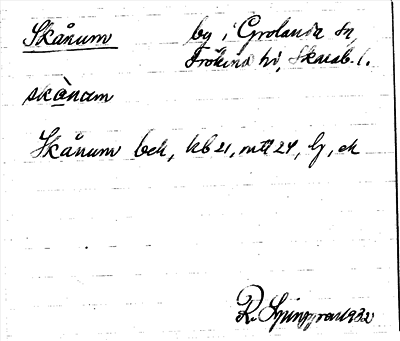 Skånum by i Grolanda sn,
Frökind hd, Skarab. l.
skånum
Skånum beb, kb 21, mtl 24, lg, ek
R. Ljunggren 1932